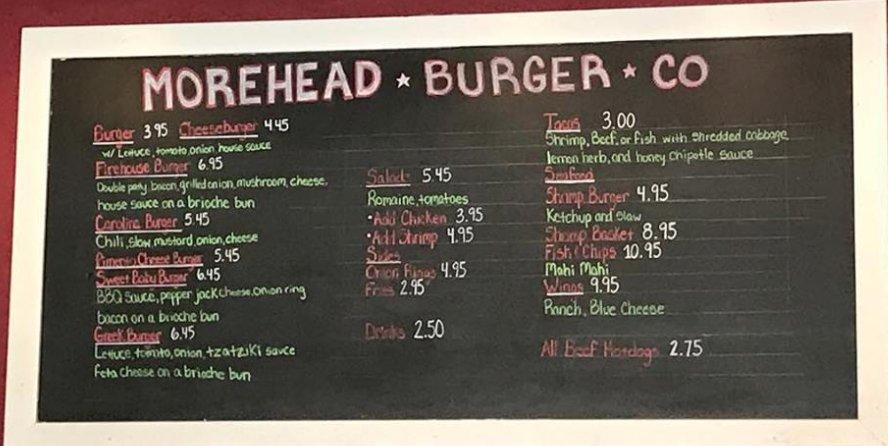 MOREHEAD ★ BURGER ★ CO
Burger 3.95 Cheeseburger 4.45
w/ Lettuce, tomato, onion, house sauce
Firehouse Burger 6.95
Double patty, bacon, grilled onion, mushroom, cheese,
house sauce on a brioche bun
Carolina Burger 5.45
Chili, slaw, mustard, onion, cheese
Pimento Cheese Burger 5.45
Sweet Baby Burger 6.45
BBQ Sauce, pepper jack cheese, onion ring
bacon on a brioche bun
Greek Burger 6.45
Lettuce, tomato, onion, tzatziki sauce
feta cheese on a brioche bun
Salads 5.45
Romaine, tomatoes
•Add Chicken 3.95
•Add Shrimp 4.95
Sides
Onion Rings 4.95
Fries 2.95
Drinks 2.50
Tacos 3.00
Shrimp, Beef, or Fish with shredded cabbage,
lemon herb, and honey chipotle sauce
Seafood
Shrimp Burger 4.95
Ketchup and slaw
Shrimp Basket 8.95
Fish & Chips 10.95
Mahi Mahi
Wings 9.95
Ranch, Blue Cheese
All Beef Hotdogs 2.75